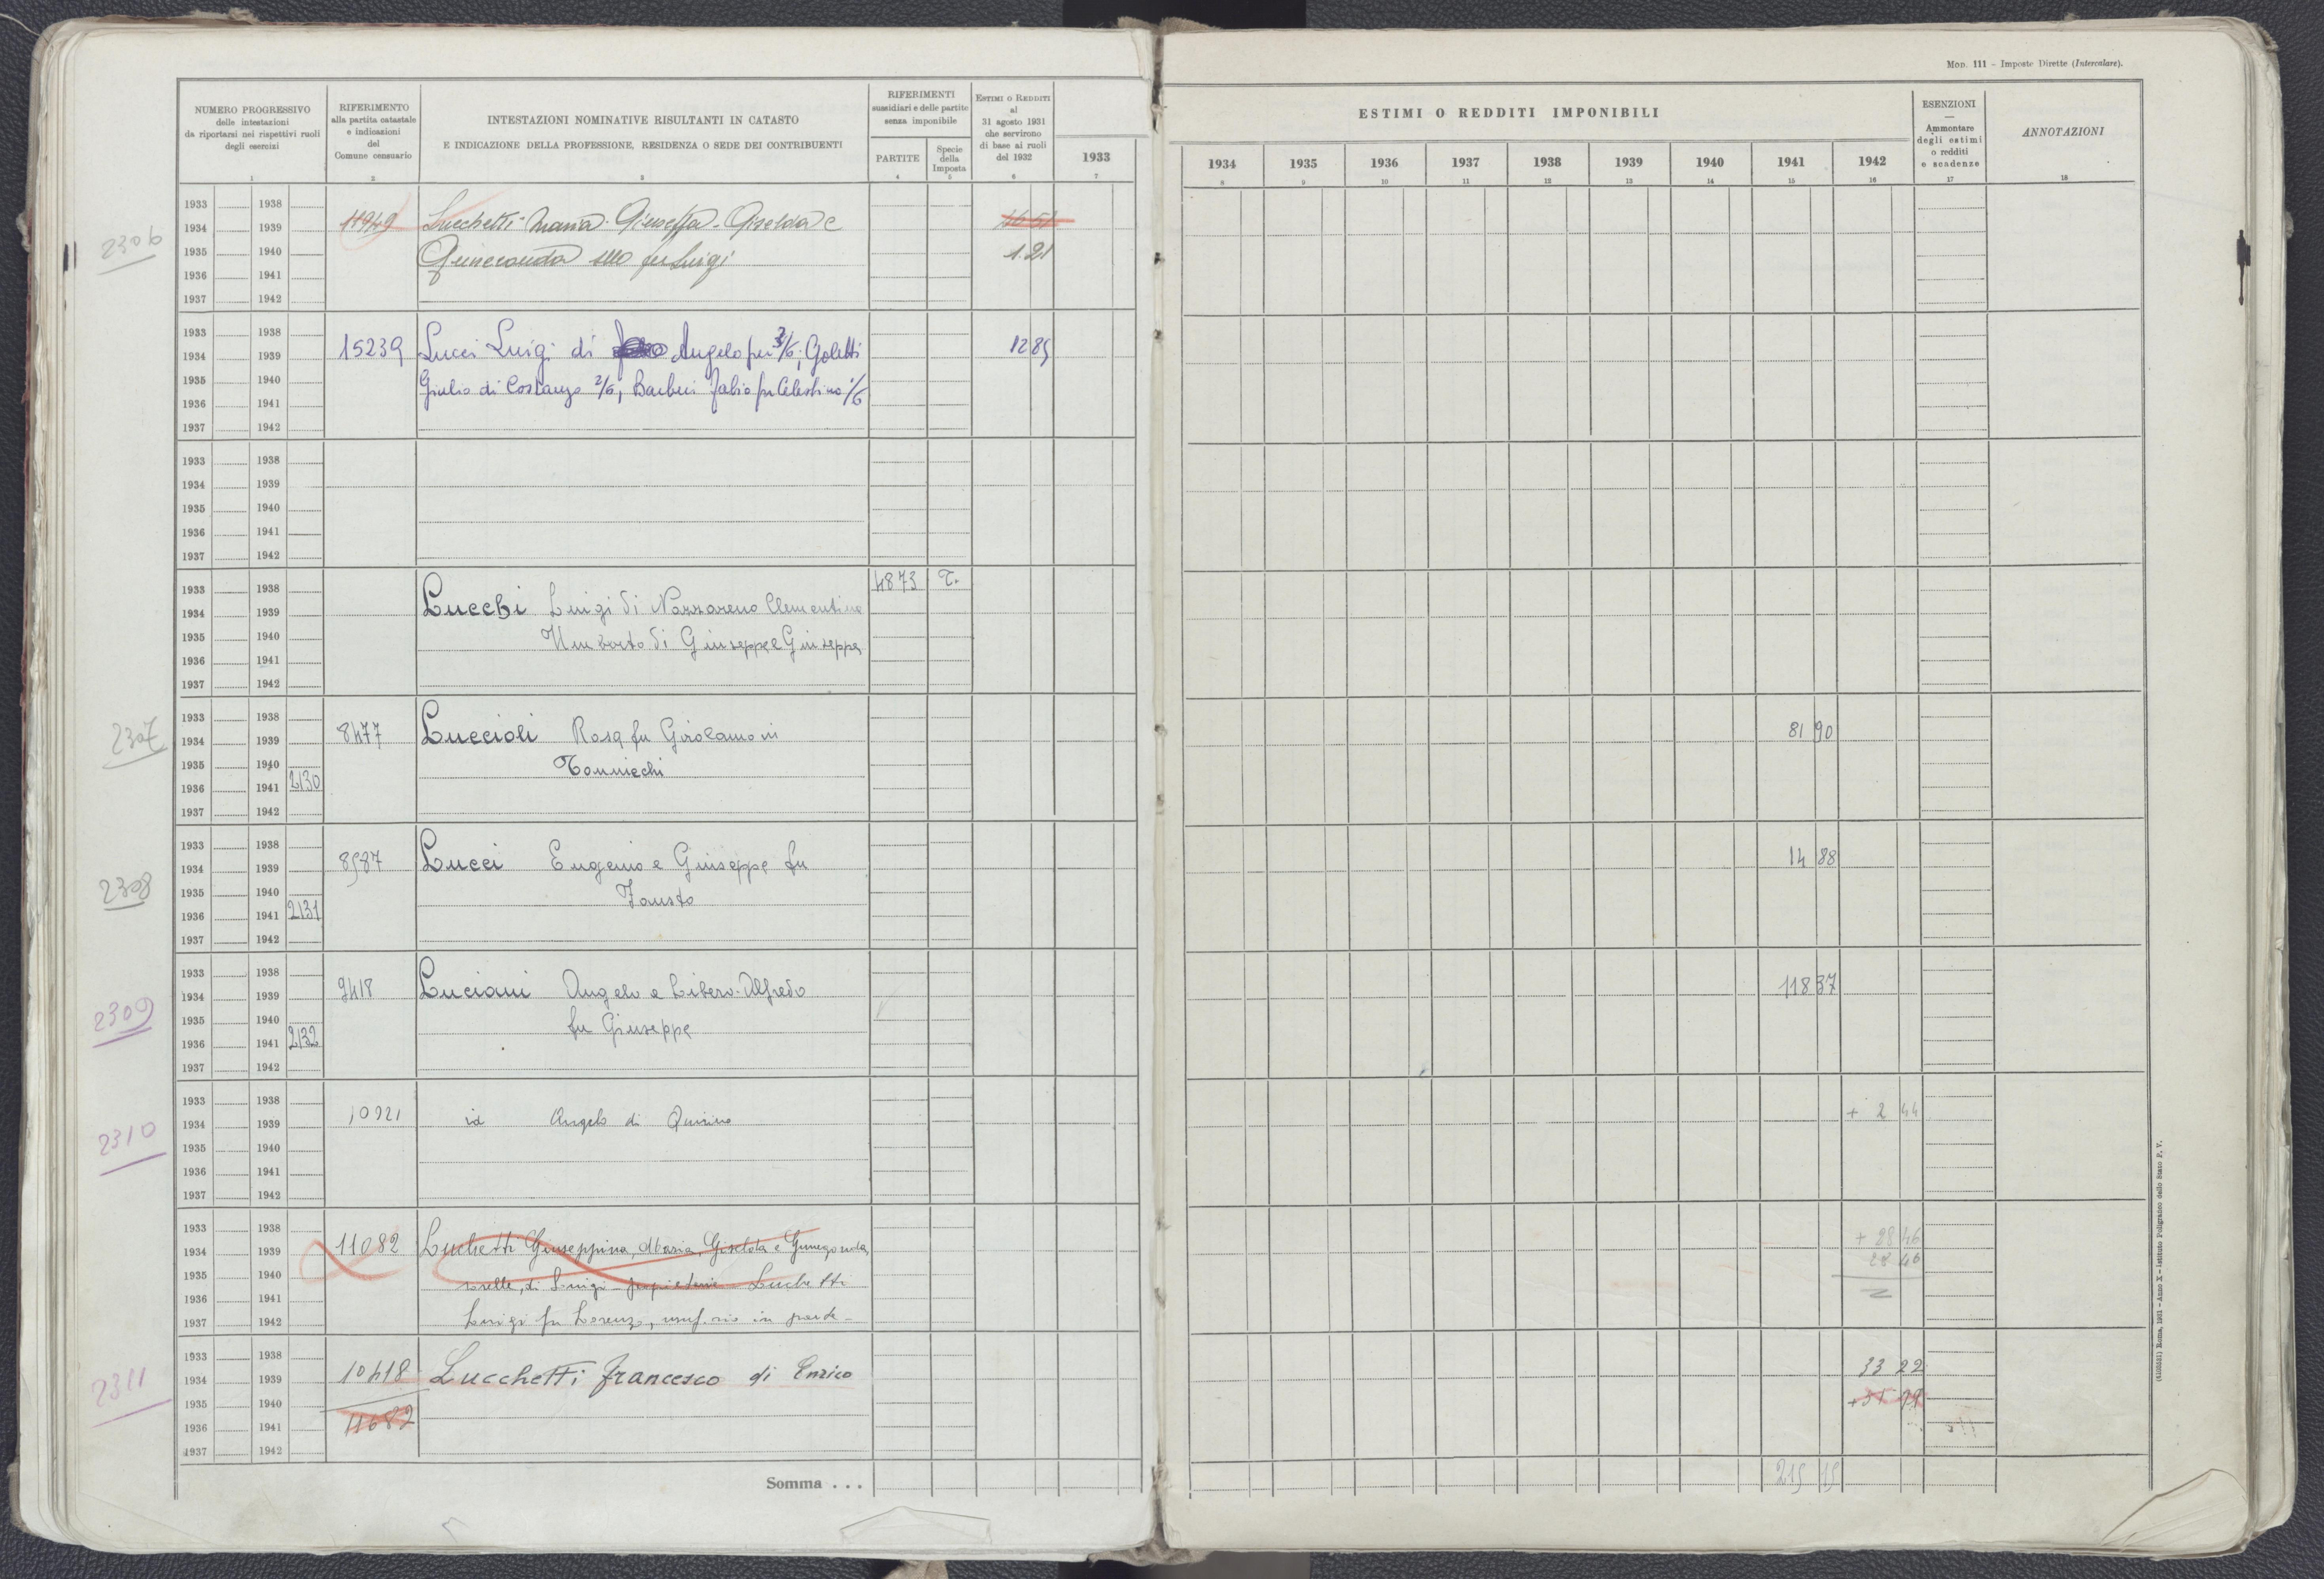 Mod. 111 – Imposte Dirette (Intercalare).
NUMERO PROGRESSIVO
delle intestazioni
da riportarsi nei rispettivi ruoli
degli esercizi
1
RIFERIMENTO
alla partita catastale
e indicazioni
del
Comune censuario
2
INTESTAZIONI NOMINATIVE RISULTANTI IN CATASTO
E INDICAZIONE DELLA PROFESSIONE, RESIDENZA O SEDE DEI CONTRIBUENTI
3
RIFERIMENTI
sussidiari e delle partite
senza imponibile
PARTITE
4
Specie
della
Imposta
5
ESTIMI O REDDITI
al
31 agosto 1931
che servirono
di base ai ruoli
del 1932
6
1933
7
ESTIMI O REDDITI IMPONIBILI
1934 1935 1936 1937 1938 1939 1940 1941 1942
8 9 10 11 12 13 14 15 16
ESENZIONI
—
Ammontare
degli estimi
o redditi
e scadenze
17
ANNOTAZIONI
18
1933 1938
2306 1934 1939 11949 Lucchetti Maria Giuseppa Giselda e
1935 1940 fu Luigi 1.21
1936 1941
1937 1942
1933 1938
1934 1939 15239 Lucci Luigi di Angelo per 3/6; Goletti 12 85
1935 1940 Giulio di Costanzo 2/6, Barberi Fabio fu Celestino 1/6
1936 1941
1937 1942
1933 1938
1934 1939
1935 1940
1936 1941
1937 1942
1933 1938 4873 T.
1934 1939 Lucchi Luigi di Nazzareno Clementina
1935 1940 Umberto di Giuseppe e Giuseppe
1936 1941
1937 1942
1933 1938
2307 1934 1939 8477 Luccioli Rosa fu Girolamo in 81 90
1935 1940 Tonniechi
1936 1941 2130
1937 1942
1933 1938
2308 1934 1939 8587 Lucci Eugenio e Giuseppe fu 14 88
1935 1940 Fausto
1936 1941 2131
1937 1942
1933 1938
2309 1934 1939 9418 Luciani Angelo e Libero-Alfredo 118 37
1935 1940 fu Giuseppe
1936 1941 2132
1937 1942
1933 1938
2310 1934 1939 10921 id Angelo di Quirino + 2 44
1935 1940
1936 1941
1937 1942
1933 1938 + 28 46
1934 1939 11082 Luchetti Giuseppina, Maria, Giselda e Gunegonda, 28 46
1935 1940 sorelle, di Luigi - proprietarie Luchetti
1936 1941
1937 1942 Luigi fu Lorenzo, usuf.rio in parte -
1933 1938
2311 1934 1939 10418 Lucchetti Francesco di Enrico 33 22
1935 1940
1936 1941 11082
1937 1942
Somma . . . 215 15
Roma, 1931 – Anno X – Istituto Poligrafico dello Stato P. V.